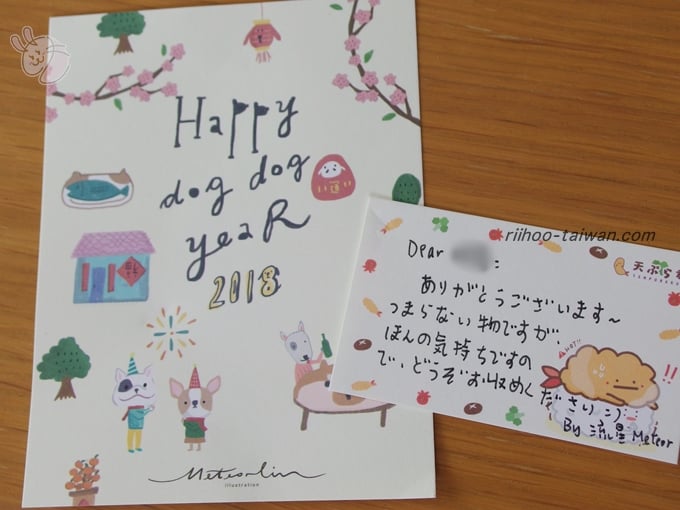 Happy
dog dog
yeaR
2018
Meteorlin
illustration
riihoo-taiwan.com
天ぷら
Dear :
ありがとうございます~
つまらない物ですが、
ほんの気持ちですの
で、どうぞお収めください :)
By 流星 Meteor
HOT!!
!!